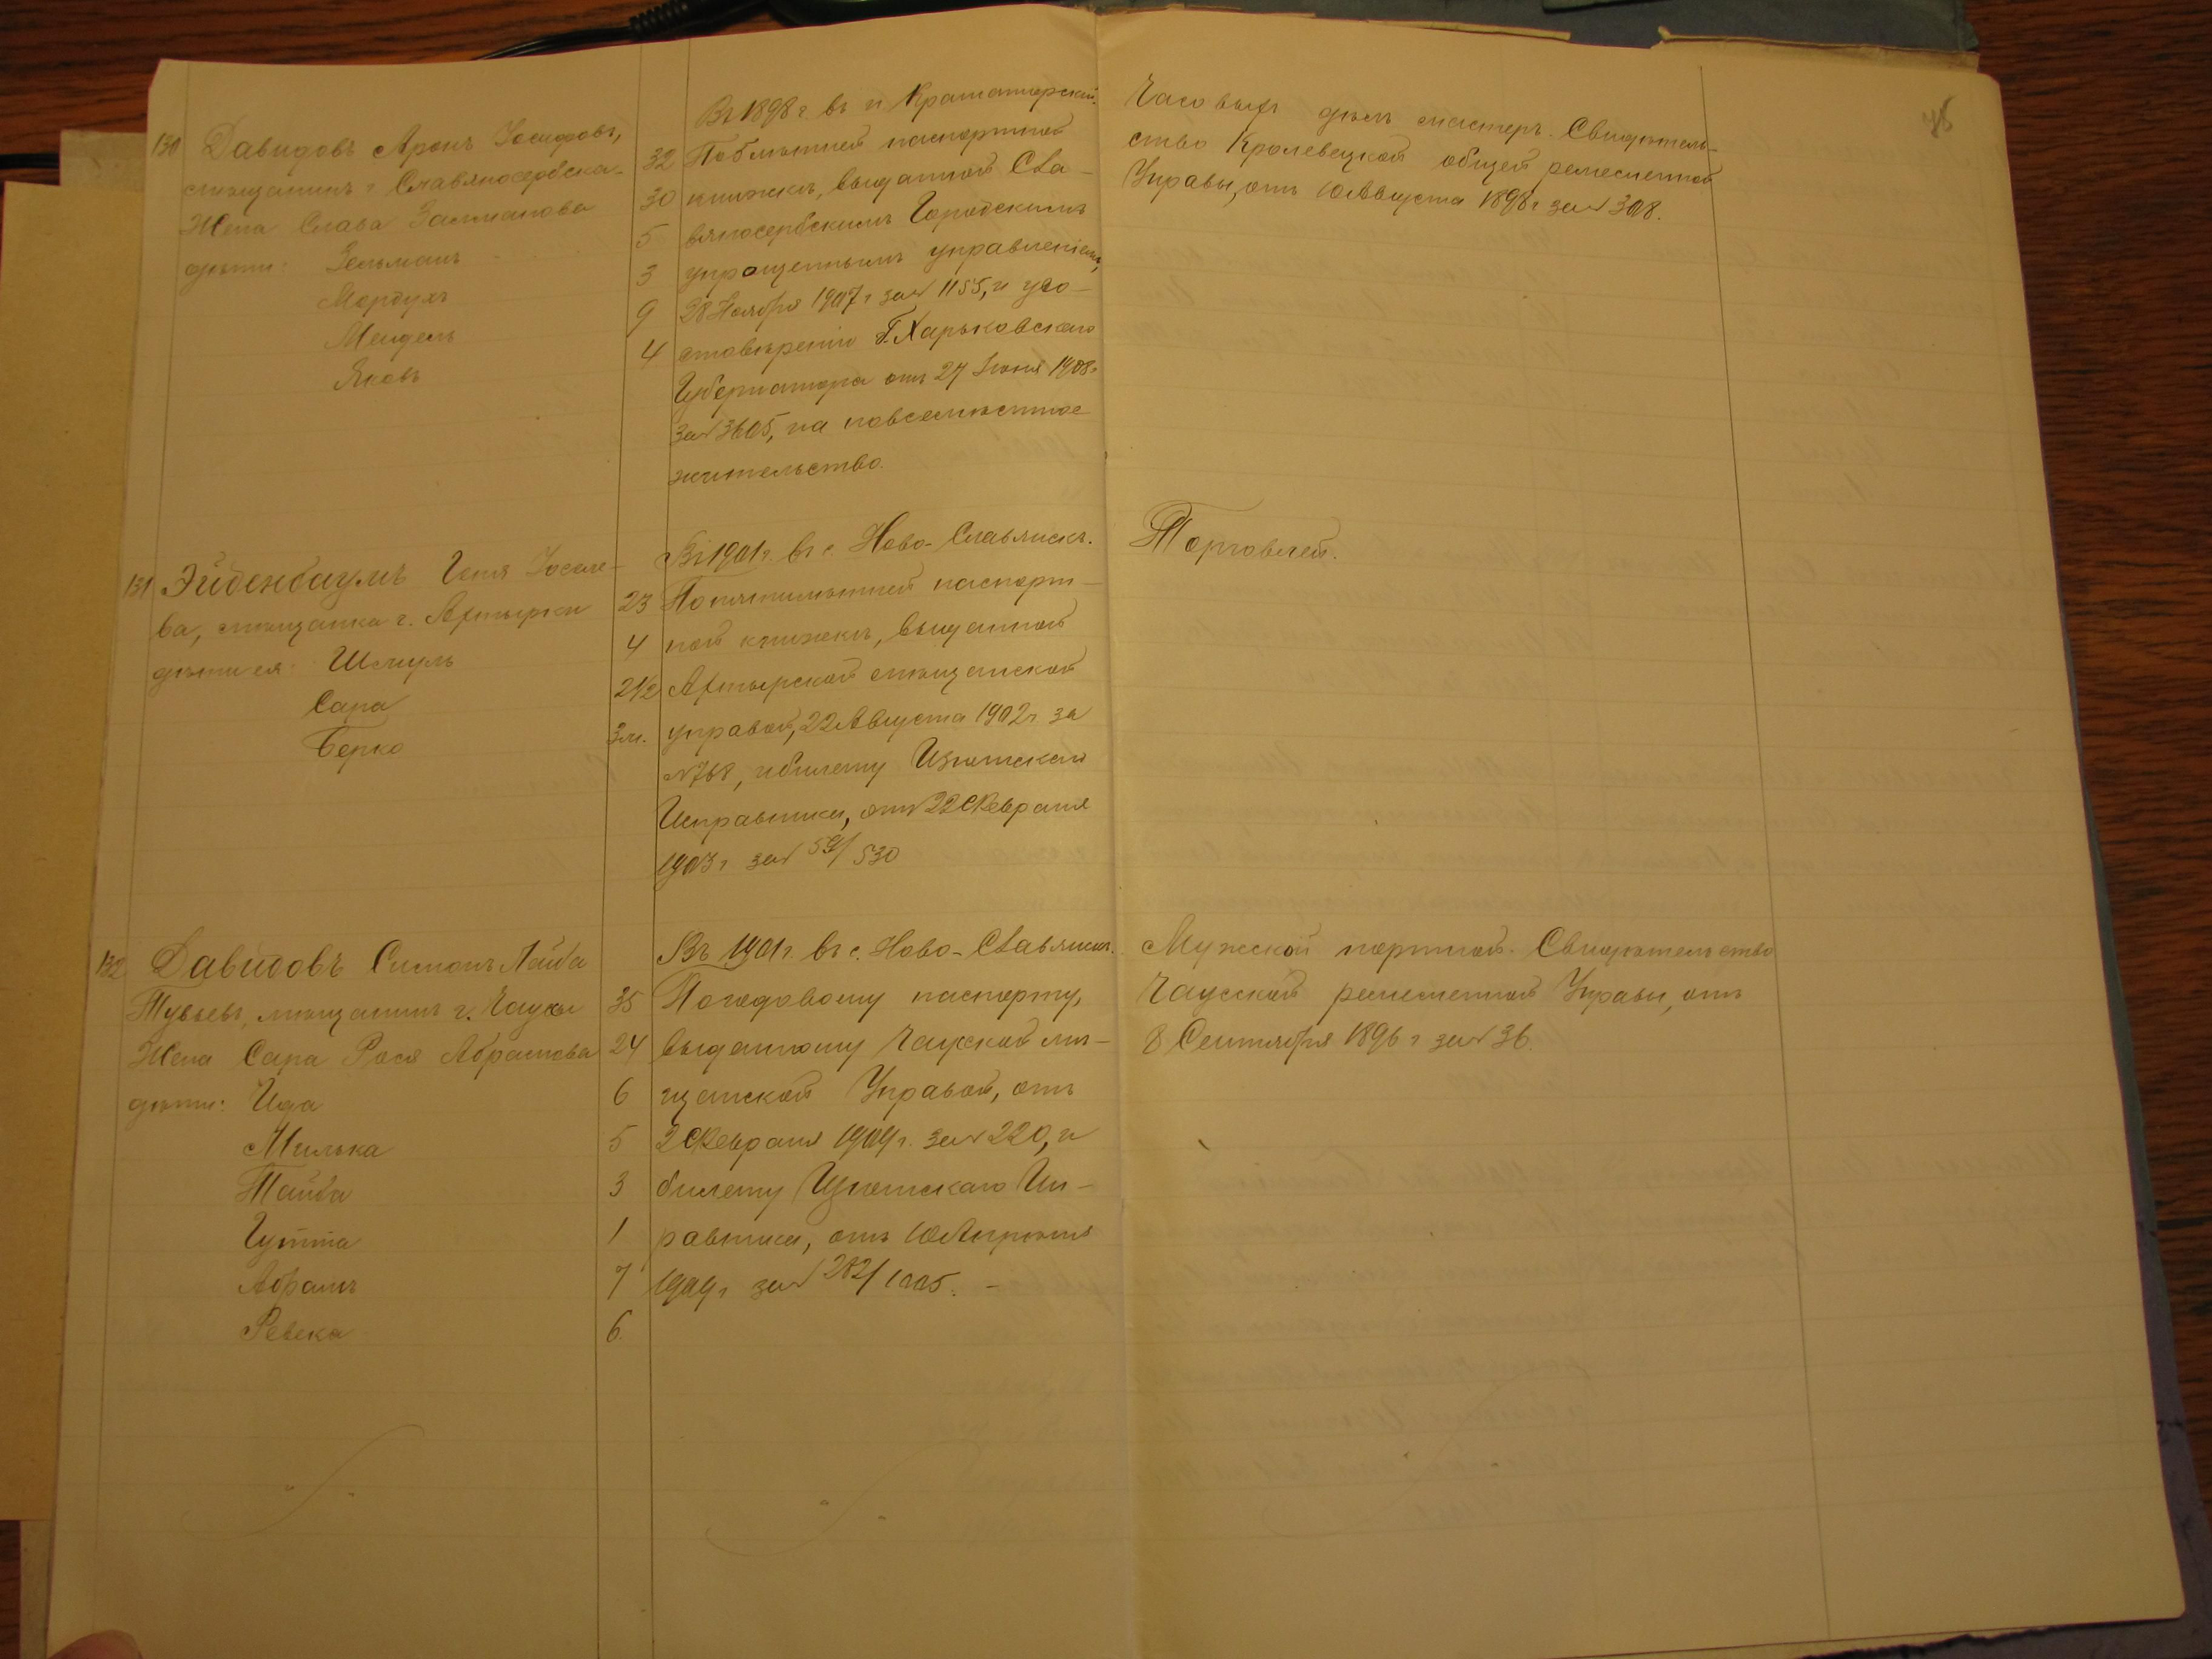 75
130 Давидовъ Аронъ Іосифовъ,
мѣщанинъ г. Славяносербска. 32
Жена Слава Залманова 30
дѣти: Зельманъ 5
Мордухъ 3
Мендель 9
Яковъ 4
Въ 1898 г. въ п Краматорский.
паспортной
книжкѣ, выданной Сла-
вяносербскимъ Городскимъ
упрощеннымъ управленіемъ,
28 Ноября 1907 г за № 1155, и удо-
стовѣренію Г. Харьковскаго
Губернатора отъ 27 Іюня 1908 г
за № 3605, на повсемѣстное
жительство.
Часовыхъ дѣлъ мастеръ. Свидѣтель-
ство Кролевецкой общей ремесленной
Управы, отъ 10 Августа 1898 г за № 308.
131 Эйденбаумъ Геня Іоселе-
ва, мѣщанка г. Ахтырки 23
дѣти ея: Шмуль 4
Сара 2 1/2
Берко 3 м.
Въ 1901 г. въ с. Ново-Славянскѣ.
По пятилѣтней паспорт-
ной книжкѣ, выданной
Ахтырской мѣщанской
управой, 22 Августа 1902 г. за
№ 768, и билету Изюмскаго
Исправника, отъ 22 Февраля
1903 г за № 59/530
Торговлей.
132 Давидовъ Симонъ Лейба
Тувьевъ, мѣщанинъ г. Чаусы 35
Жена Сара Рося Абрамова 24
дѣти: Ида 6
Милька 5
Тайба 3
Гутта 1
Абрамъ 7
Ревека 6.
Въ 1901 г. въ с. Ново-Славянскѣ.
По годовому паспорту,
выданному Чаусской мѣ-
щанской Управой, отъ
2 Февраля 1909 г. за № 220, и
билету Изюмскаго Исп-
равника, отъ 10 Апрѣля
1909 г за № 282/1005. -
Мужской портной. Свидѣтельство
Чаусской ремесленной Управы, отъ
8 Сентября 1896 г за № 36.